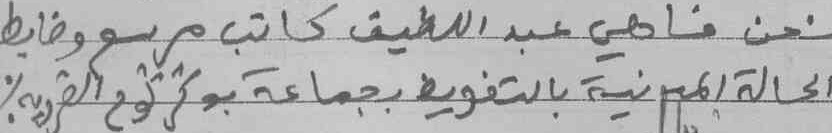 نحن فناهي عبد اللطيف كاتب مرسم وضابط
الحالة المدنية بالتفويض بجماعة بوكركوح القروية /.